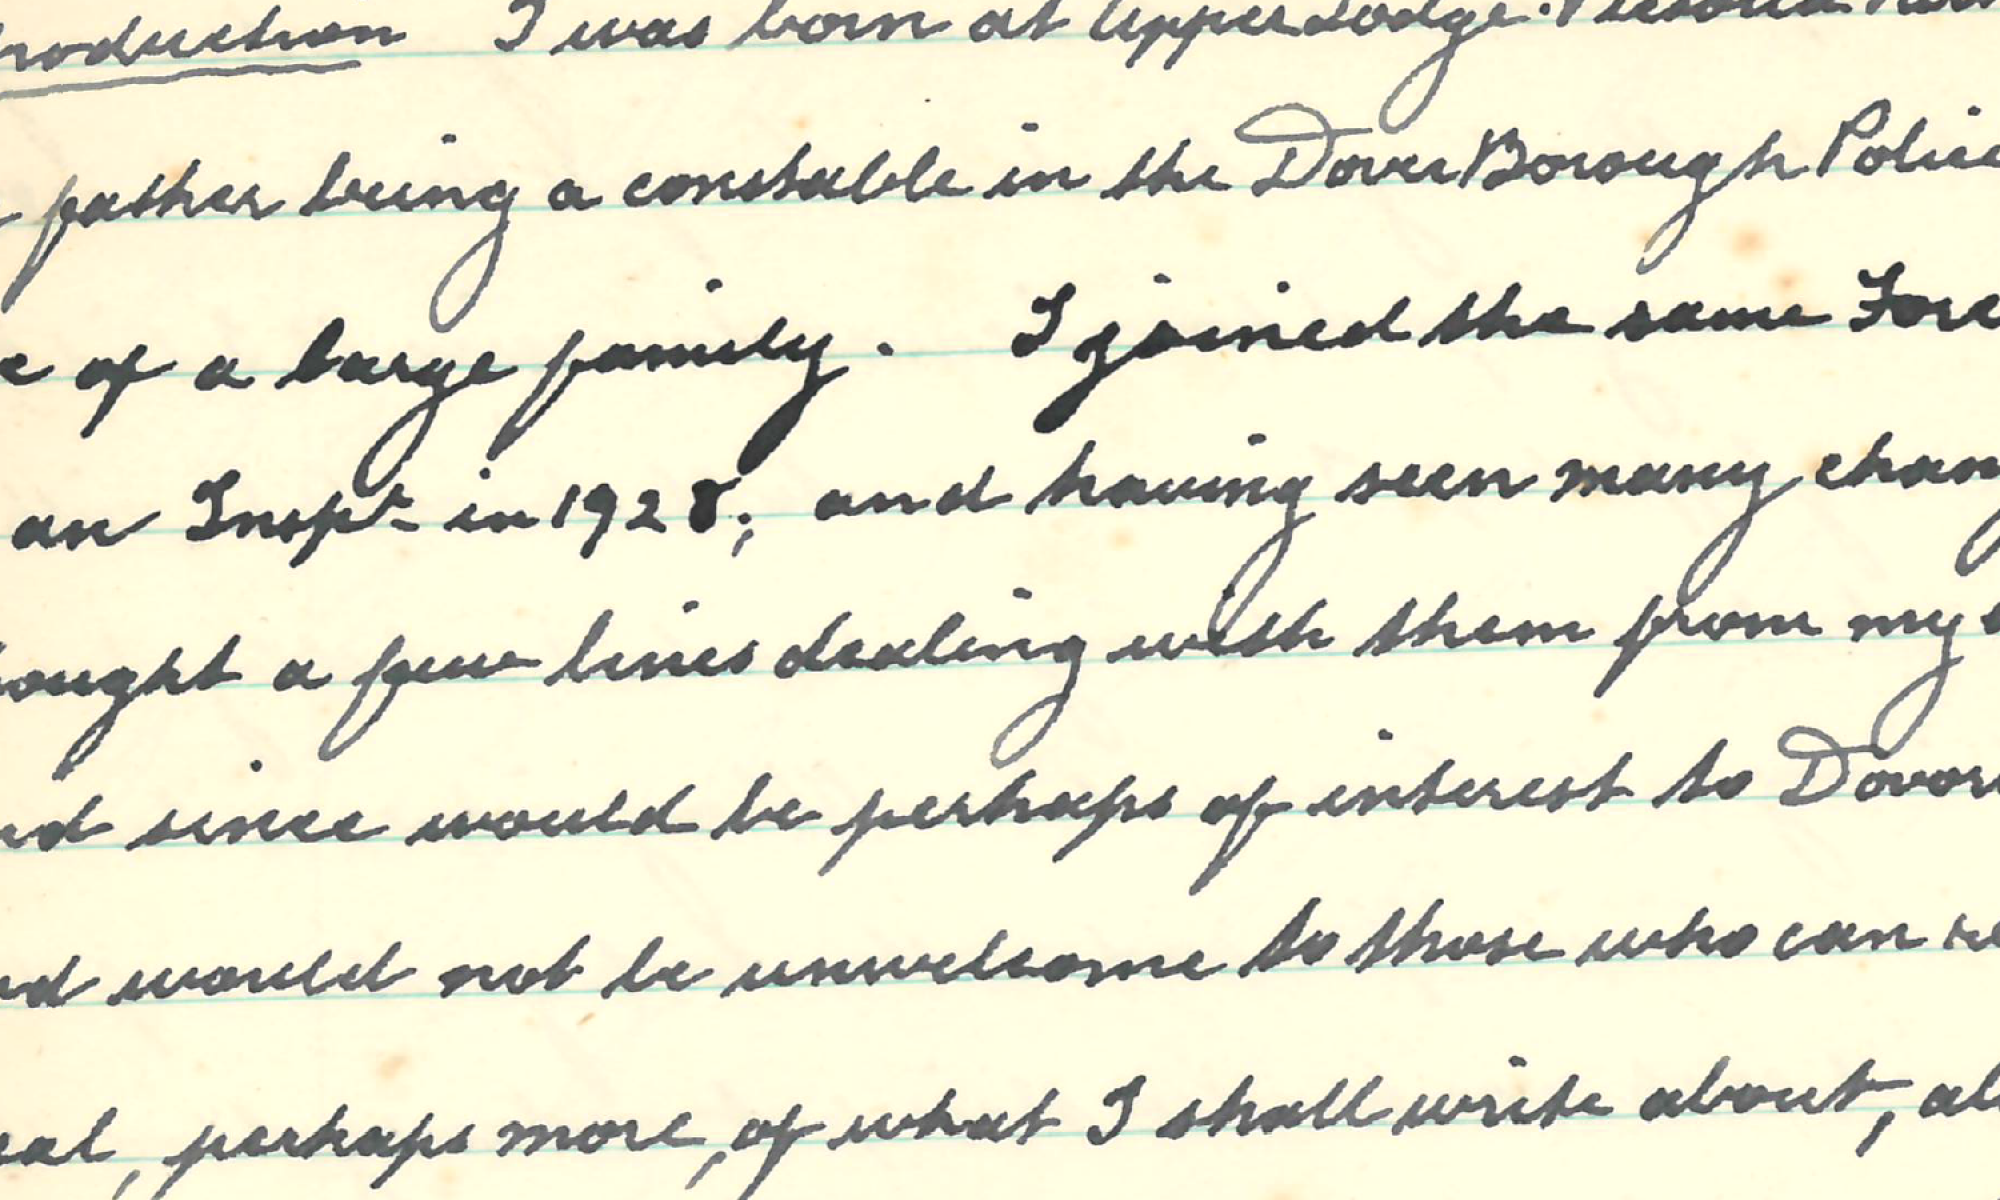 roduction I was born at Upper Lodge.
father being a constable in the Dover Borough Polic
e of a large family. I joined the same Forc
an Inspr in 1928; and having seen many chan
ought a few lines dealing with them from my
nd since would be perhaps of interest to Dovor
nd would not be unwelcome to those who can re
eal, perhaps more, of what I shall write about, al